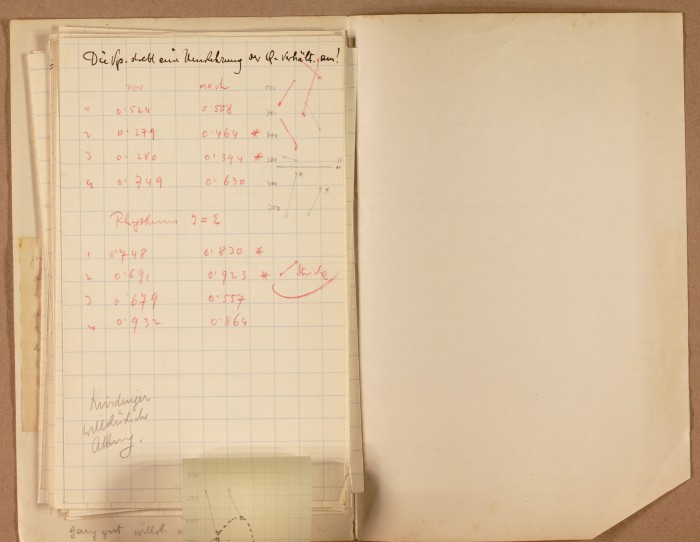 Die Vp. strebt eine Umkehrung der Q-Verhält. an!
vor nach
1 0.524 0.508
2 0.279 0.464 *
3 0.280 0.394 *
4 0.749 0.630
Rhythmus I = E
1 0.748 0.830 *
2 0.691 0.923 *
3 0.679 0.557
4 0.932 0.864
willkürliche
Atmung.
ganz gut willk